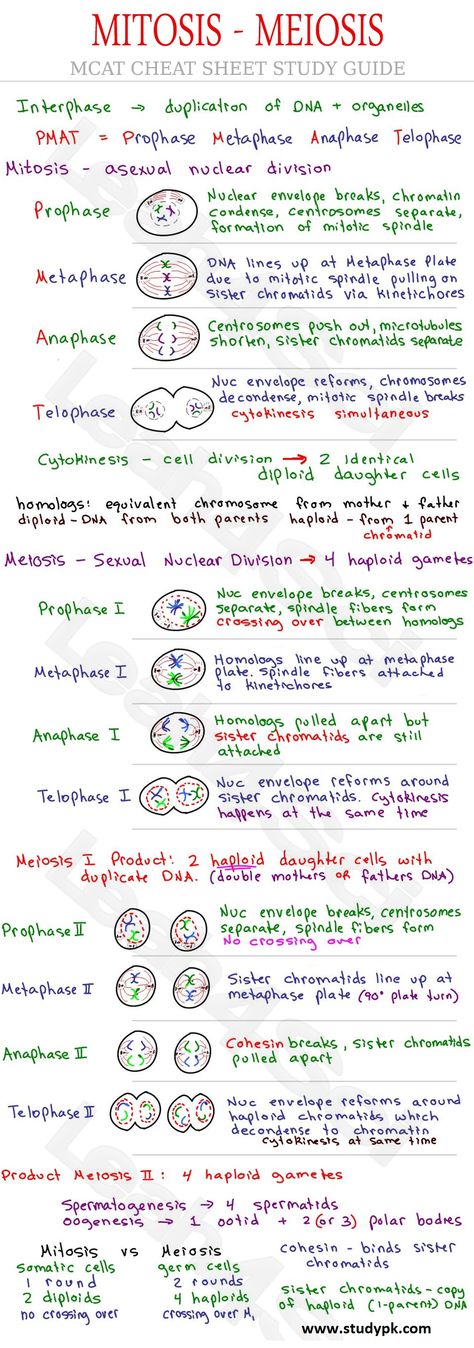 MITOSIS - MEIOSIS
MCAT CHEAT SHEET STUDY GUIDE
Interphase → duplication of DNA + organelles
PMAT = Prophase Metaphase Anaphase Telophase
Mitosis - asexual nuclear division
Prophase
Nuclear envelope breaks, chromatin
condense, centrosomes separate,
formation of mitotic spindle
Metaphase
DNA lines up at Metaphase Plate
due to mitotic spindle pulling on
sister chromatids via kinetichores
Anaphase
Centrosomes push out, microtubules
shorten, sister chromatids separate
Telophase
Nuc envelope reforms, chromosomes
decondense, mitotic spindle breaks
cytokinesis simultaneous
Cytokinesis - cell division → 2 identical
diploid daughter cells
homologs: equivalent chromosome from mother + father
diploid - DNA from both parents haploid - from 1 parent
chromatid
Meiosis - Sexual Nuclear Division → 4 haploid gametes
Prophase I
Nuc envelope breaks, centrosomes
separate, spindle fibers form
crossing over between homologs
Metaphase I
Homologs line up at metaphase
plate. Spindle fibers attached
to kinetichores
Anaphase I
Homologs pulled apart but
sister chromatids are still
attached
Telophase I
Nuc envelope reforms around
sister chromatids. Cytokinesis
happens at the same time
Meiosis I Product: 2 haploid daughter cells with
duplicate DNA. (double mothers or fathers DNA)
Prophase II
Nuc envelope breaks, centrosomes
separate, spindle fibers form
No crossing over
Metaphase II
Sister chromatids line up at
metaphase plate (90° plate turn)
Anaphase II
Cohesin breaks, sister chromatids
pulled apart
Telophase II
Nuc envelope reforms around
haploid chromatids which
decondense to chromatin
cytokinesis at same time
Product Meiosis II: 4 haploid gametes
Spermatogenesis → 4 spermatids
oogenesis → 1 ootid + 2 (or 3) polar bodies
Mitosis vs Meiosis
somatic cells germ cells
1 round 2 rounds
2 diploids 4 haploids
no crossing over crossing over M1
cohesin - binds sister
chromatids
sister chromatids - copy
of haploid (1-parent) DNA
www.studypk.com
Leah4Sci
Leah4Sci
Leah4Sci
Leah4Sci